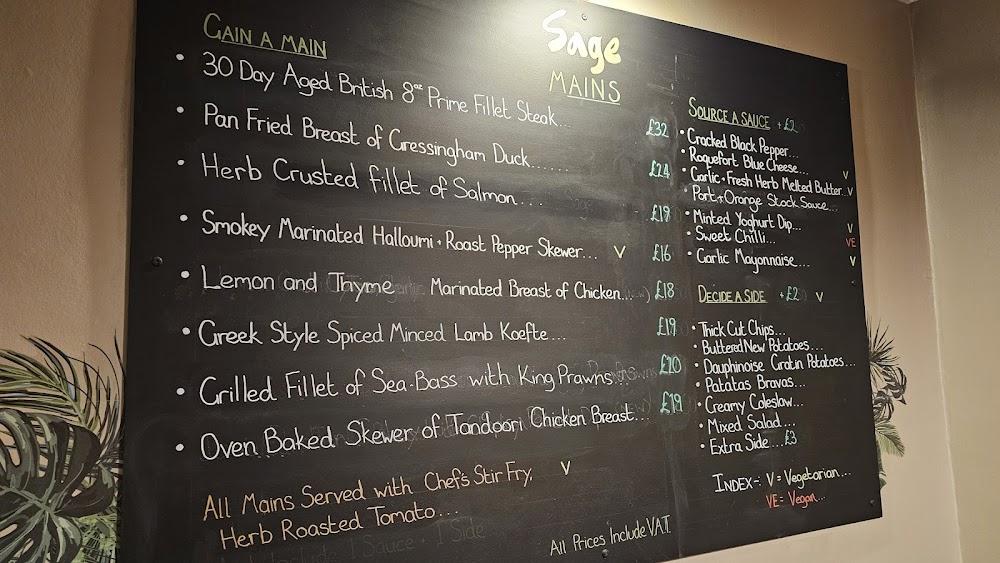 Sage
MAINS
GAIN A MAIN
• 30 Day Aged British 8oz Prime Fillet Steak... £32
• Pan Fried Breast of Gressingham Duck...... £24
• Herb Crusted fillet of Salmon... £19
• Smokey Marinated Halloumi + Roast Pepper Skewer... V £16
• Lemon and Thyme Marinated Breast of Chicken... £18
• Greek Style Spiced Minced Lamb Koefte... £19
• Grilled Fillet of Sea-Bass with King Prawns... £20
• Oven Baked Skewer of Tandoori Chicken Breast... £19
All Mains Served with Chef's Stir Fry, V
Herb Roasted Tomato...
1 Sauce + 1 Side
SOURCE A SAUCE +£2
• Cracked Black Pepper...
• Roquefort Blue Cheese... V
• Garlic + Fresh Herb Melted Butter.. V
• Port + Orange Stock Sauce...
• Minted Yoghurt Dip... V
• Sweet Chilli... VE
• Garlic Mayonnaise.... V
DECIDE A SIDE +£2 V
• Thick Cut Chips...
• Buttered New Potatoes...
• Dauphinoise Gratin Potatoes...
• Patatas Bravas...
• Creamy Coleslaw...
• Mixed Salad....
• Extra Side...£3
INDEX -: V = Vegetarian...
VE = Vegan...
All Prices Include V.A.T.